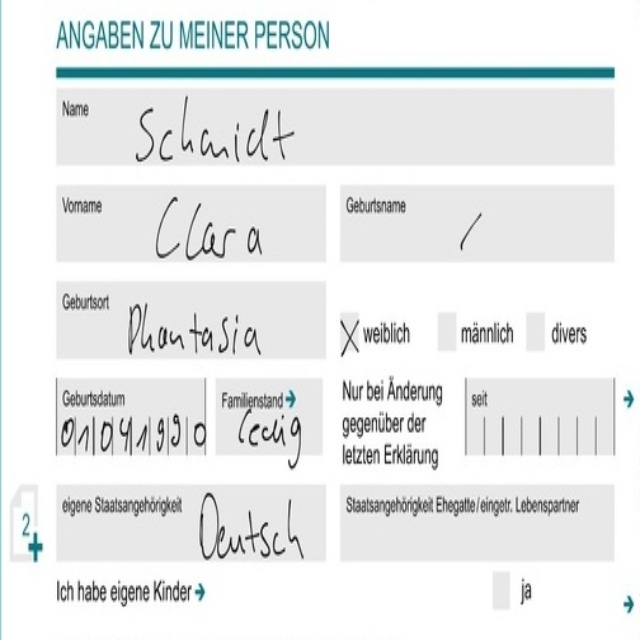 ANGABEN ZU MEINER PERSON
Name
Schmidt
Vorname
Clara
Geburtsname
/
Geburtsort
Phantasia
X weiblich
männlich
divers
Geburtsdatum
01041990
Familienstand →
ledig
Nur bei Änderung
gegenüber der
letzten Erklärung
seit
2
eigene Staatsangehörigkeit
Deutsch
Staatsangehörigkeit Ehegatte/eingetr. Lebenspartner
Ich habe eigene Kinder →
ja